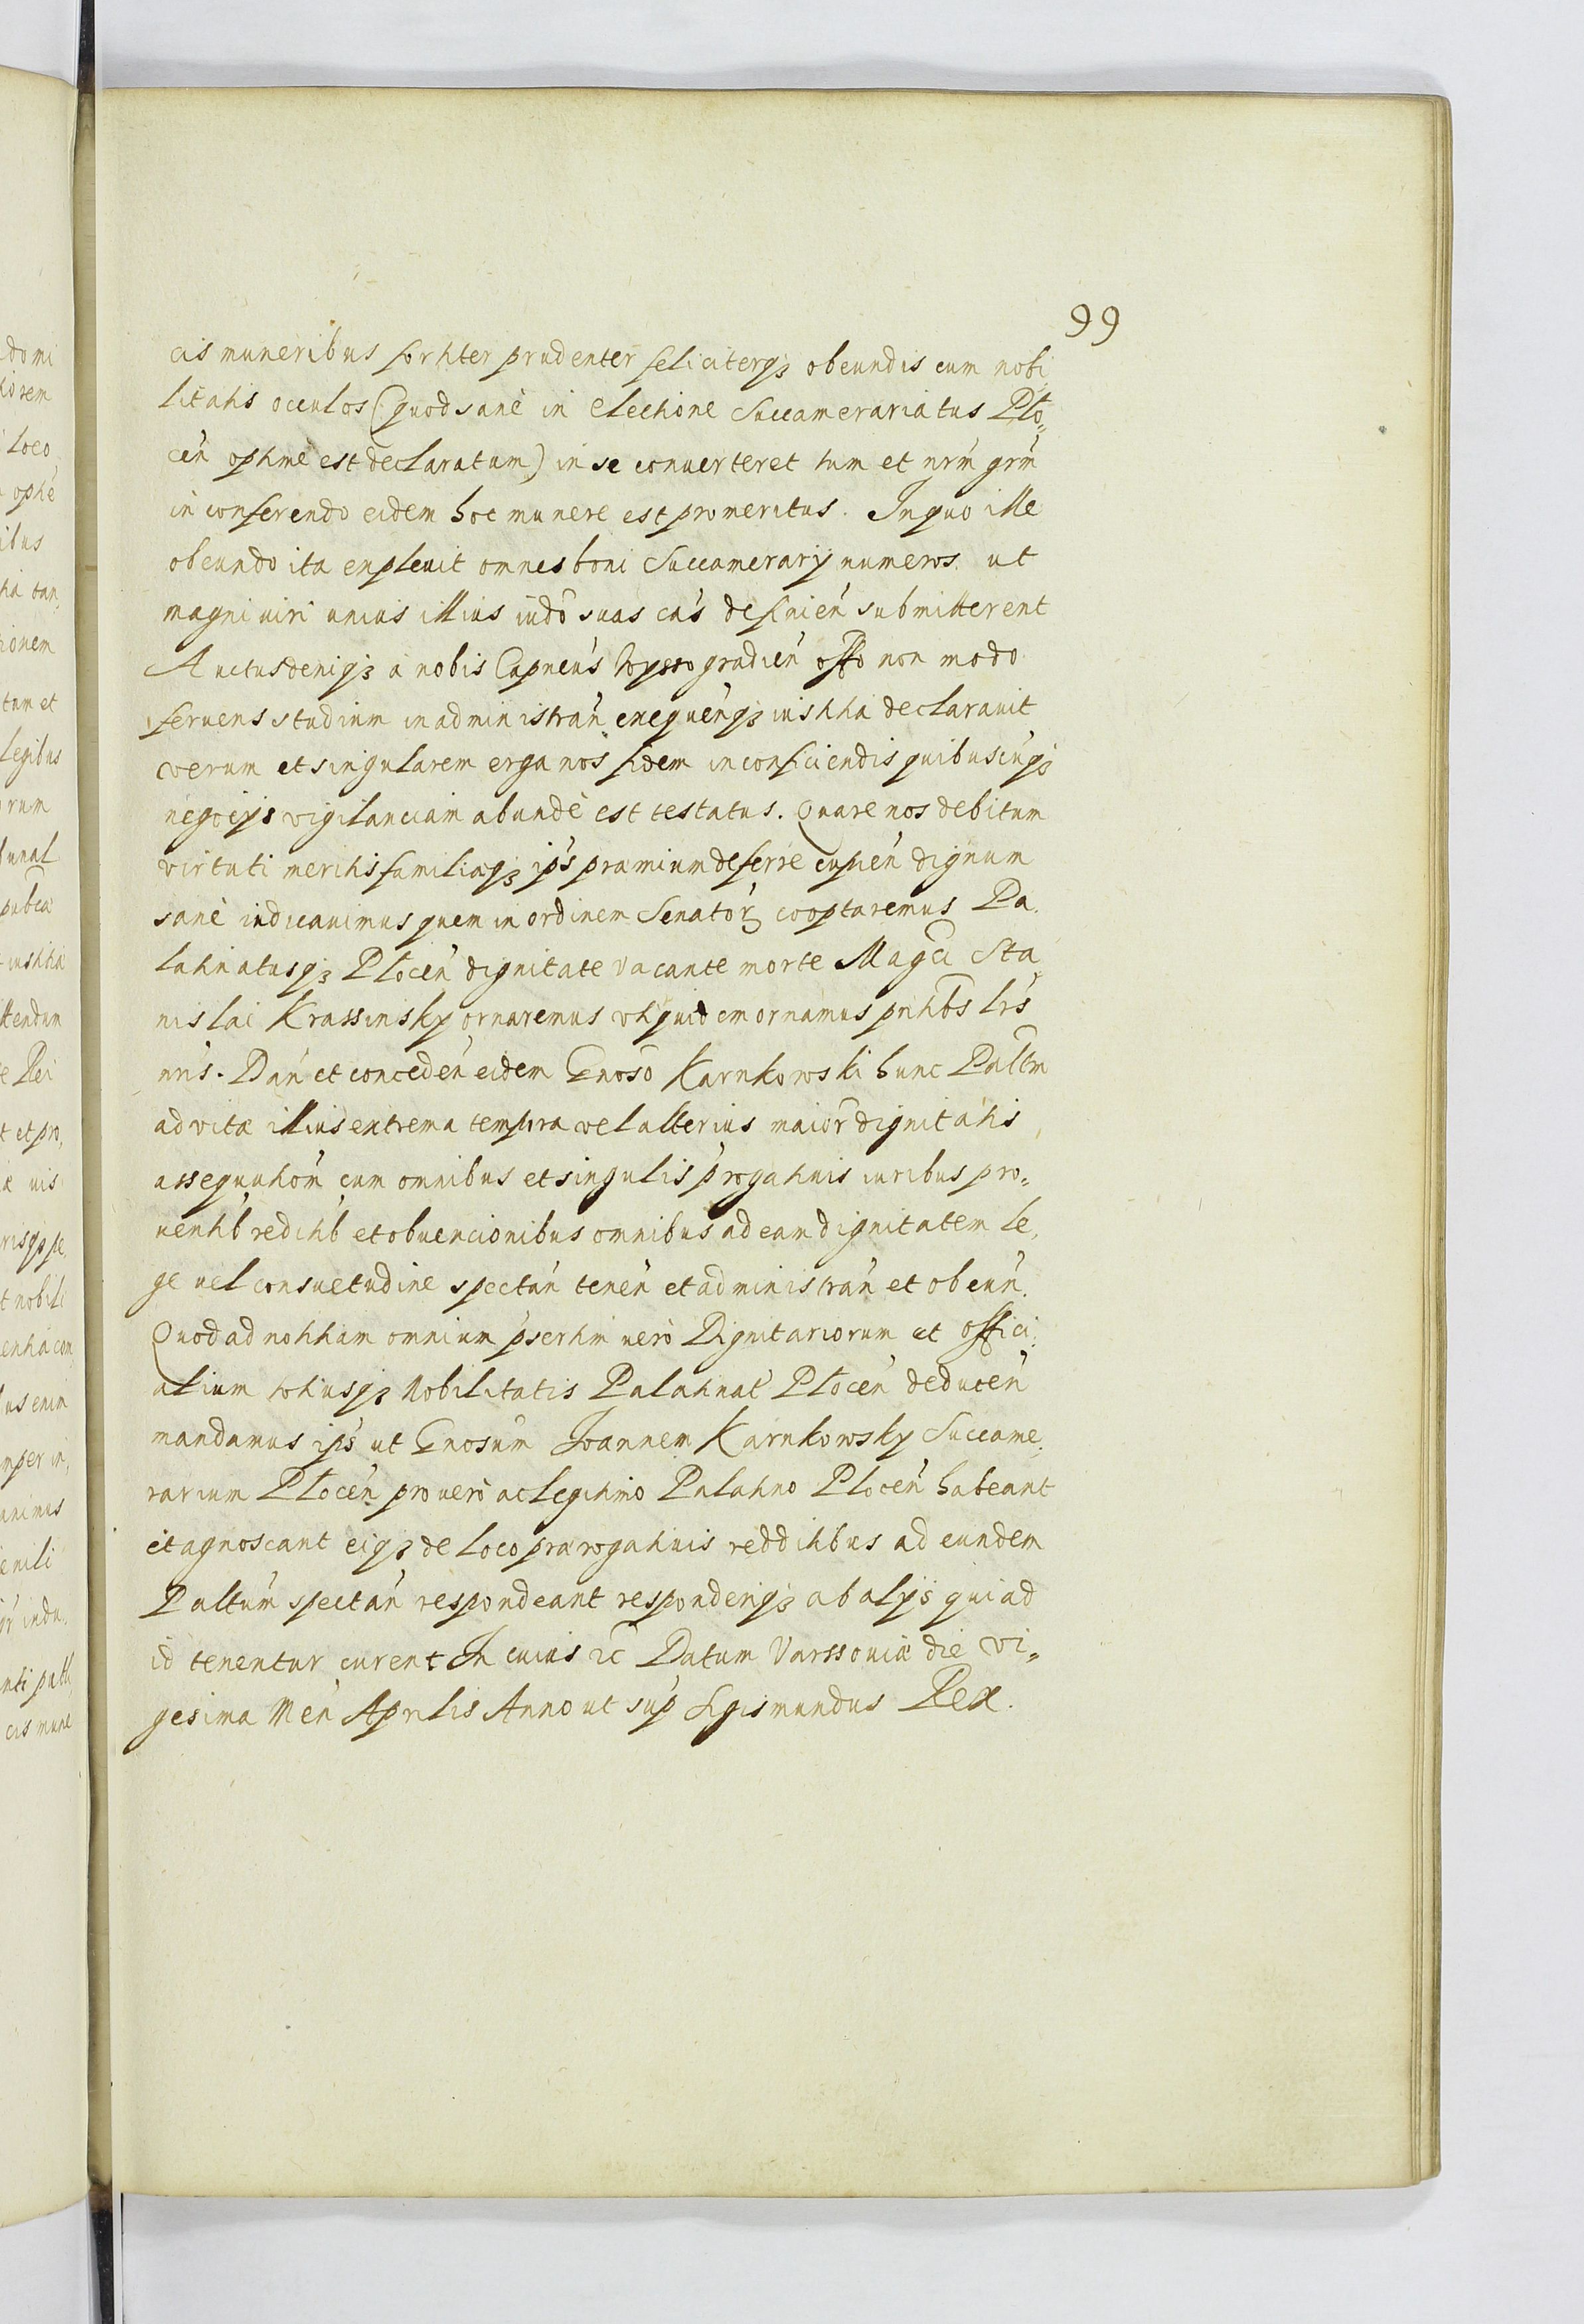 99
cis muneribus fortiter prudenter feliciterq3 obeundis cum nobi,
litatis occulos (quod sanè in electione Succamerariatus Plo„
cen̄ optimè est declaratum) in se conuerteret tum et nrm̄ grm̄
in conferendo eidem hoc munere est promeritus. In quo ille
obeundo ita expleuit omnes boni Succamerarij numeros. ut
magni uiri unius illius iudō suas cās definien̄ submitterent
Auctus deniq3 a nobis Capnens̄ gradien̄ offō non modo
feruens studium in administran̄ exequenq3 iustitia declarauit
verum et singularem erga nos fidem in conficiendis quibuscuq3
negocijs vigilanciam abundè est testatus. Quare nos debitum
virtuti meritis familiaeq3 ips̄ praemium deferre cupien̄ dignum
sanè iudicauimus quem in ordinem Senator̄ cooptaremus Pa,
latinatusq3 Plocen̄ dignitate vacante morte Magci Sta,
nislai Krassinsky ornaremus uti quidem ornamus pntibs lrs̄
nrīs. Dan̄ et conceden̄ eidem Gnoso Karnkowski hunc Paltm̄
ad vitae illius extrema tempora vel alterius maior̄ dignitatis
assequutiom̄ cum omnibus et singulis progatiuis iuribus pro„
uentib̄ reditib̄ et obuencionibus omnibus ad eam dignitatem le,
ge uel consuetudine spectan̄ tenen̄ et administran̄ et obeun̄.
Quod ad notitiam omnium psertim uerò Dignitariorum et offici,
alium totiusq3 Nobilitatis Palatinat̄ Plocen̄ deducen̄
mandamus ips̄ ut Gnosum Joannem Karnkowsky Succame,
rarium Plocen̄ pro uero ac legitimo Palatino Plocen̄ habeant
et agnoscant eiq3 de loco praerogatiuis redditibus ad eundem
Paltum̄ spectan̄ respondeant responderiq3 ab alijs qui ad
id tenentur curent In cuius rc̄ Datum Varssouiae die vi„
gesima Men̄ Aprilis Anno ut sup̄ Sigismundus Rex.